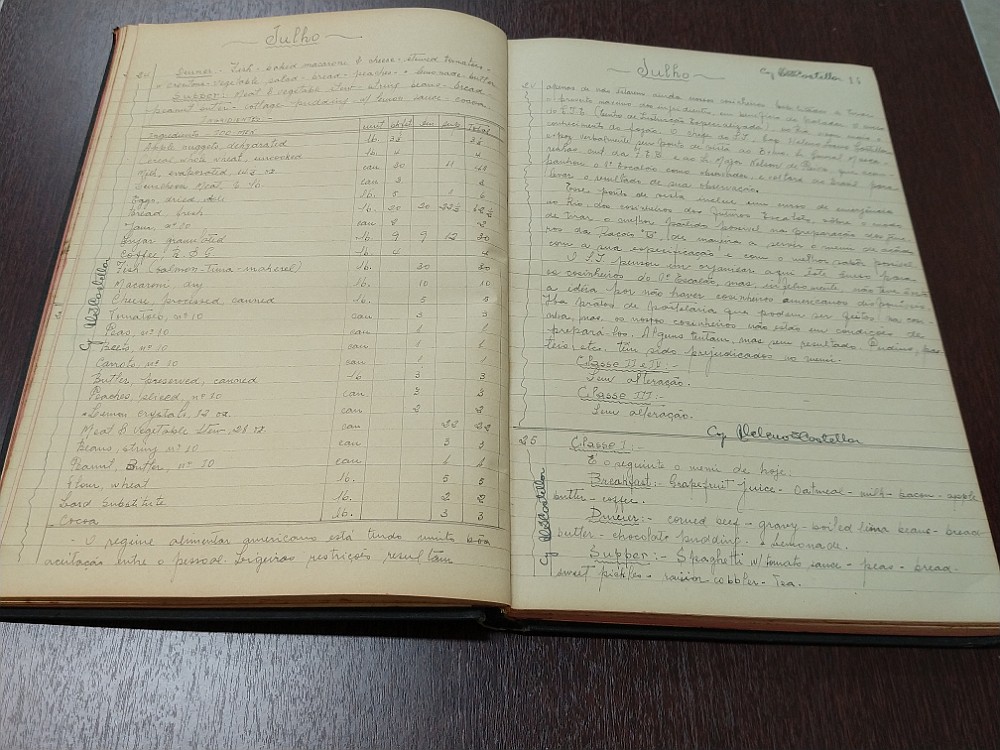 Julho
24 Dinner - Fish - baked macaroni & cheese - stewed tomatoes -
croutons - vegetable salad - bread - peaches - lemonade - butter
Supper: Meat & vegetable stew - string beans - bread
peanut butter - cottage pudding w/ lemon sauce - cocoa
Ingredients 100 men unit bkfst din sup Total
Apple nuggets, dehydrated lb. 3½ 3½
Cereal whole wheat, uncooked lb. 4 4
Milk, evaporated 14½ oz can 30 11 41
Luncheon Meat, 6 lb. can
Eggs, dried lb. 5 1 6
Bread fresh lb. 30 30 22½ 82½
Jam, nº 10 can 2 2
Sugar granulated lb. 9 9 12 30
Coffee, R & G lb. 4 4
Fish (salmon - Tuna - makerel) lb. 30 30
Macaroni, dry lb. 10 10
Cheese, processed, canned lb. 5 5
Tomatoes, nº 10 can 3 3
Peas, nº 10 can 1 1
Beets, nº 10 can 1 1
Carrots nº 10 can 1 1
Butter, preserved, canned lb 3 3
Peaches, sliced, nº 10 can 3 3
Lemon crystals, 12 oz. can 2 2
Meat & Vegetable Stew, 28 oz can 22 22
Beans, string nº 10 can 3 3
Peanut, Butter, nº 10 can 1 1
Flour, wheat lb. 5 5
Lard Substitute lb. 2 2
Cocoa lb. 3 3
- O regime alimentar americano está tendo muito bôa
aceitação entre o pessoal. Ligeiras restrições resultam
Julho
24 apenas de não estarem ainda nossos cosinheiros
o proveito maximo dos ingredientes, em beneficio do paladar. O nosso
conhecimento do fogão. O chefe da S.I., Cap. Heleno Soares Castellar
expoz verbalmente seu ponto de vista ao Exmo. Sr. General
panhou o 1º Escalão como observador, e voltará ao Brasil para
levar o resultado de sua observação.
Esse ponto de vista inclue um curso de emergência
no Rio, dos cosinheiros dos futuros Escalões, sôbre o modo
de tirar o melhor partido possivel na preparação dos
ros da Ração "B", de maneira a servir o menú de acôrdo
com a sua especificação e com o melhor sabôr possivel.
A S.I pensou em organizar aqui êste curso para
os cosinheiros do 1º Escalão, mas, infelizmente, não teve exito
a idéia por não haver cosinheiros americanos disponiveis.
Há pratos de pastelaria que podem ser feitos na
mas, os nossos cosinheiros não estão em condições de
prepará-los. Alguns tentam, mas sem resultado. Pudins, pas-
teis, etc. têm sido prejudicados no menú.
Classe II e IV:-
Sem alteração.
Classe III:-
Sem alteração.
Cap Heleno Castellar
25 Classe I:-
É o seguinte o menú de hoje:
Breakfast:- Grapefruit juice - oatmeal - milk - bacon - apple
butter - coffee.
Dinner:- corned beef - gravy - boiled lima beans - bread
butter - chocolate pudding - Lemonade.
Supper:- Spaghetti w/ tomato sauce - peas - bread -
sweet pickles - raisin cobbler - Tea.